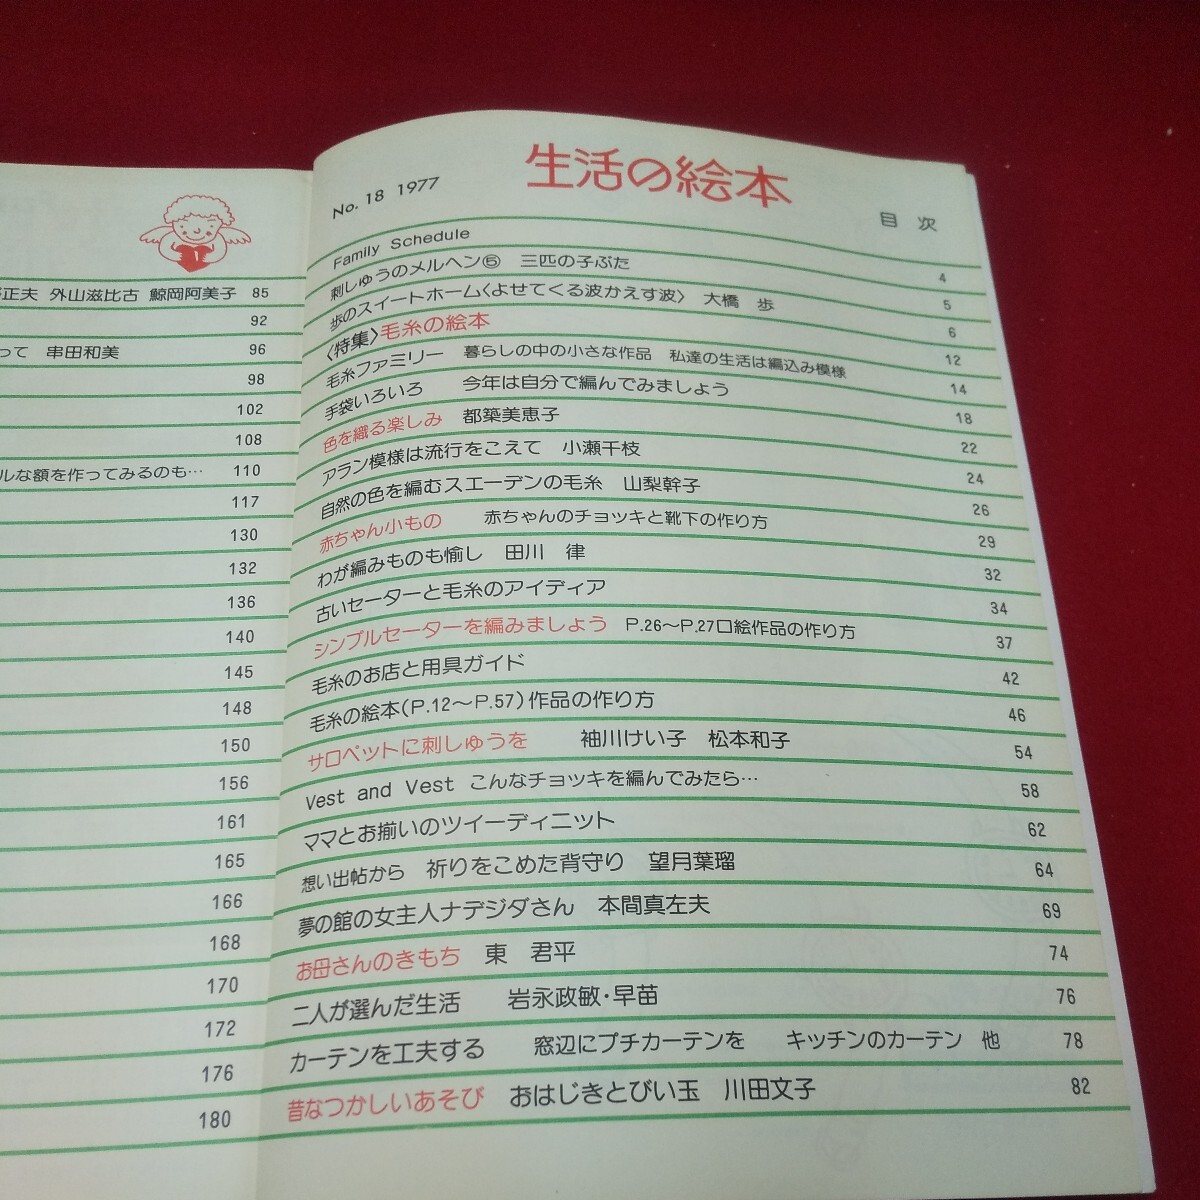 正夫 外山滋比古 鯨岡阿美子 85
92
って 串田和美 96
98
102
108
ルな額を作ってみるのも… 110
117
130
132
136
140
145
148
150
156
161
165
166
168
170
172
176
180
No. 18 1977
生活の絵本
目次
Family Schedule 4
刺しゅうのメルヘン⑤ 三匹の子ぶた 5
歩のスイートホーム〈よせてくる波かえす波〉 大橋 歩 6
〈特集〉毛糸の絵本 12
毛糸ファミリー 暮らしの中の小さな作品 私達の生活は編込み模様 14
手袋いろいろ 今年は自分で編んでみましょう 18
色を織る楽しみ 都築美恵子 22
アラン模様は流行をこえて 小瀬千枝 24
自然の色を編むスエーデンの毛糸 山梨幹子 26
赤ちゃん小もの 赤ちゃんのチョッキと靴下の作り方 29
わが編みものも愉し 田川 律 32
古いセーターと毛糸のアイディア 34
シンプルセーターを編みましょう P.26〜P.27口絵作品の作り方 37
毛糸のお店と用具ガイド 42
毛糸の絵本(P.12〜P.57)作品の作り方 46
サロペットに刺しゅうを 袖川けい子 松本和子 54
Vest and Vest こんなチョッキを編んでみたら… 58
ママとお揃いのツイーディニット 62
想い出帖から 祈りをこめた背守り 望月葉瑠 64
夢の館の女主人ナデジダさん 本間真左夫 69
お母さんのきもち 東 君平 74
二人が選んだ生活 岩永政敏・早苗 76
カーテンを工夫する 窓辺にプチカーテンを キッチンのカーテン 他 78
昔なつかしいあそび おはじきとびい玉 川田文子 82